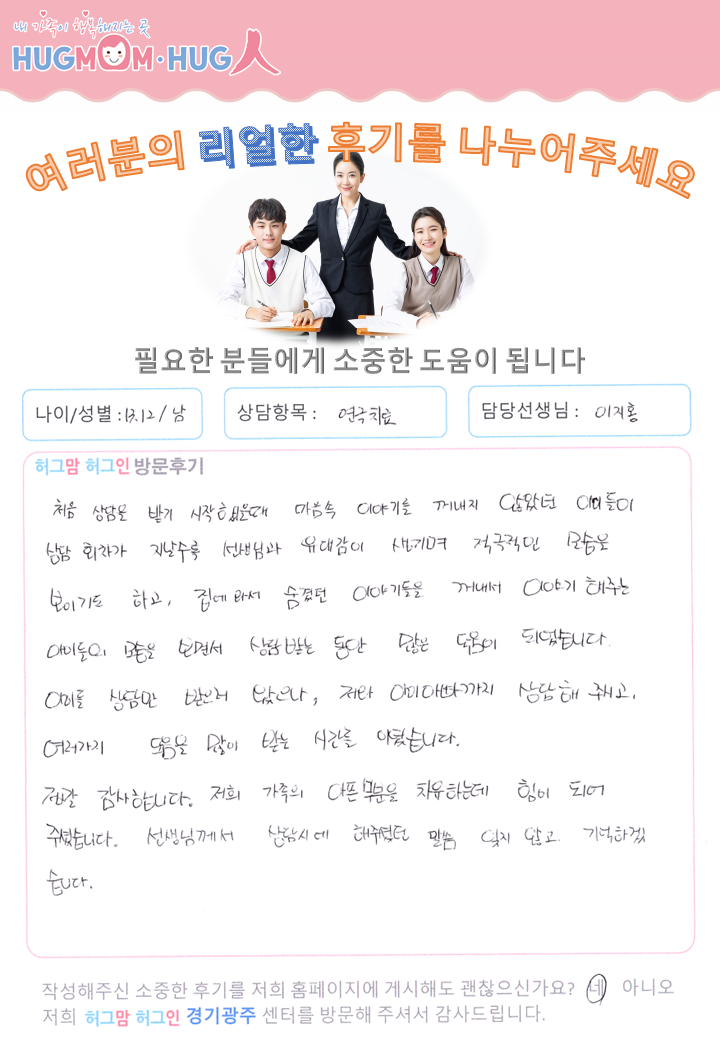 내 가족이 행복해지는 곳
HUGMOM·HUG人
여러분의 리얼한 후기를 나누어주세요
필요한 분들에게 소중한 도움이 됩니다
나이/성별 : 13.12 / 남
상담항목 : 연극치료
담당선생님 : 이지홍
허그맘 허그인 방문후기
처음 상담을 받기 시작했을때 마음속 이야기를 꺼내지 않았던 아이들이
상담 회차가 지날수록 선생님과 유대감이 생기며 적극적인 모습을
보이기도 하고, 집에 와서 숨겼던 이야기들을 꺼내서 이야기 해주는
아이들의 모습을 보면서 상담 받는 동안 많은 도움이 되었습니다.
아이들 상담만 받으러 왔으나, 저와 아이아빠까지 상담해 주시고,
여러가지 도움을 많이 받는 시간를 가졌습니다.
정말 감사합니다. 저희 가족의 아픈 부분을 치유하는데 힘이 되어
주셨습니다. 선생님께서 상담시에 해주셨던 말씀 잊지 않고 기억하겠
습니다.
작성해주신 소중한 후기를 저희 홈페이지에 게시해도 괜찮으신가요? 네 아니오
저희 허그맘 허그인 경기광주 센터를 방문해 주셔서 감사드립니다.